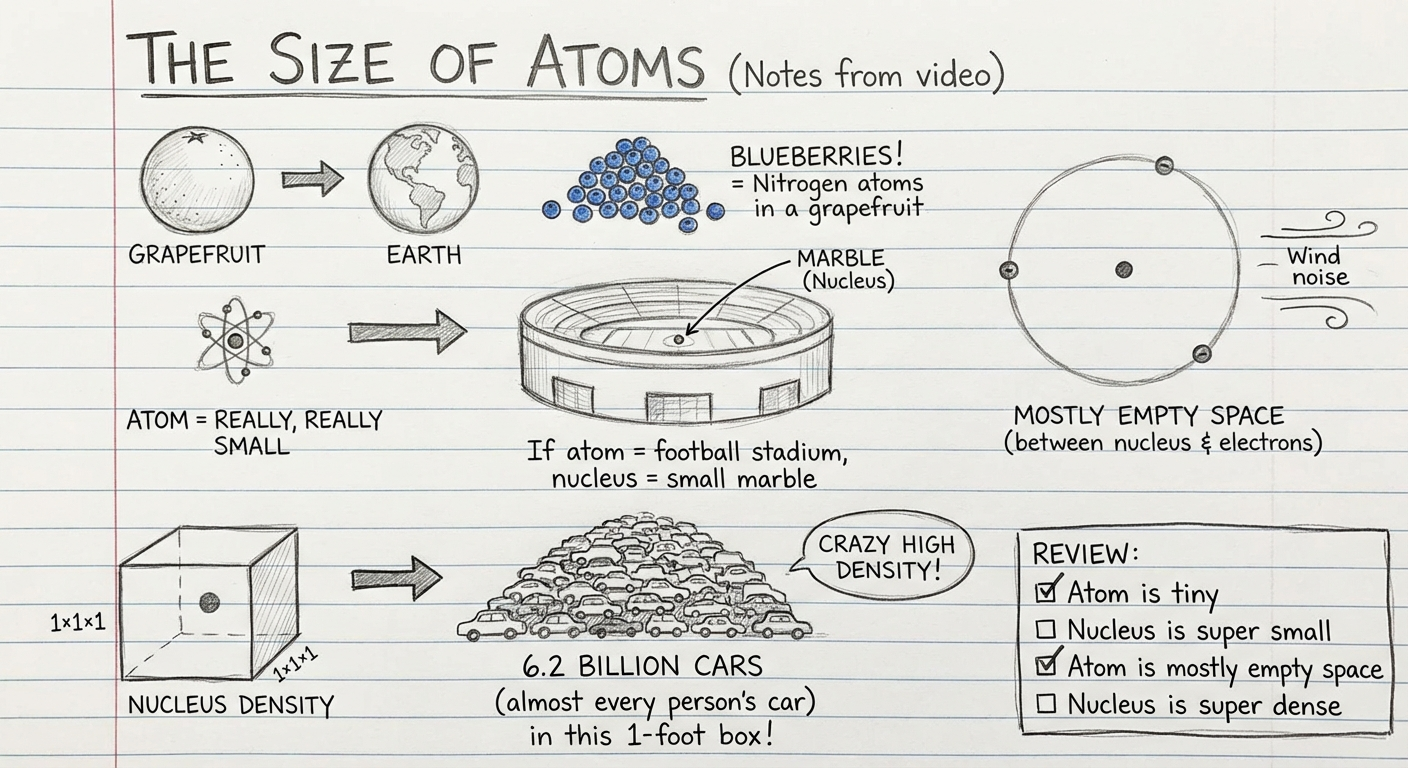 THE SIZE OF ATOMS (Notes from video)
GRAPEFRUIT
EARTH
BLUEBERRIES!
= Nitrogen atoms
in a grapefruit
ATOM = REALLY, REALLY
SMALL
MARBLE
(Nucleus)
If atom = football stadium,
nucleus = small marble
Wind
noise
MOSTLY EMPTY SPACE
(between nucleus & electrons)
1×1×1
1×1×1
NUCLEUS DENSITY
CRAZY HIGH
DENSITY!
6.2 BILLION CARS
(almost every person's car)
in this 1-foot box!
REVIEW:
☑ Atom is tiny
☐ Nucleus is super small
☑ Atom is mostly empty space
☐ Nucleus is super dense